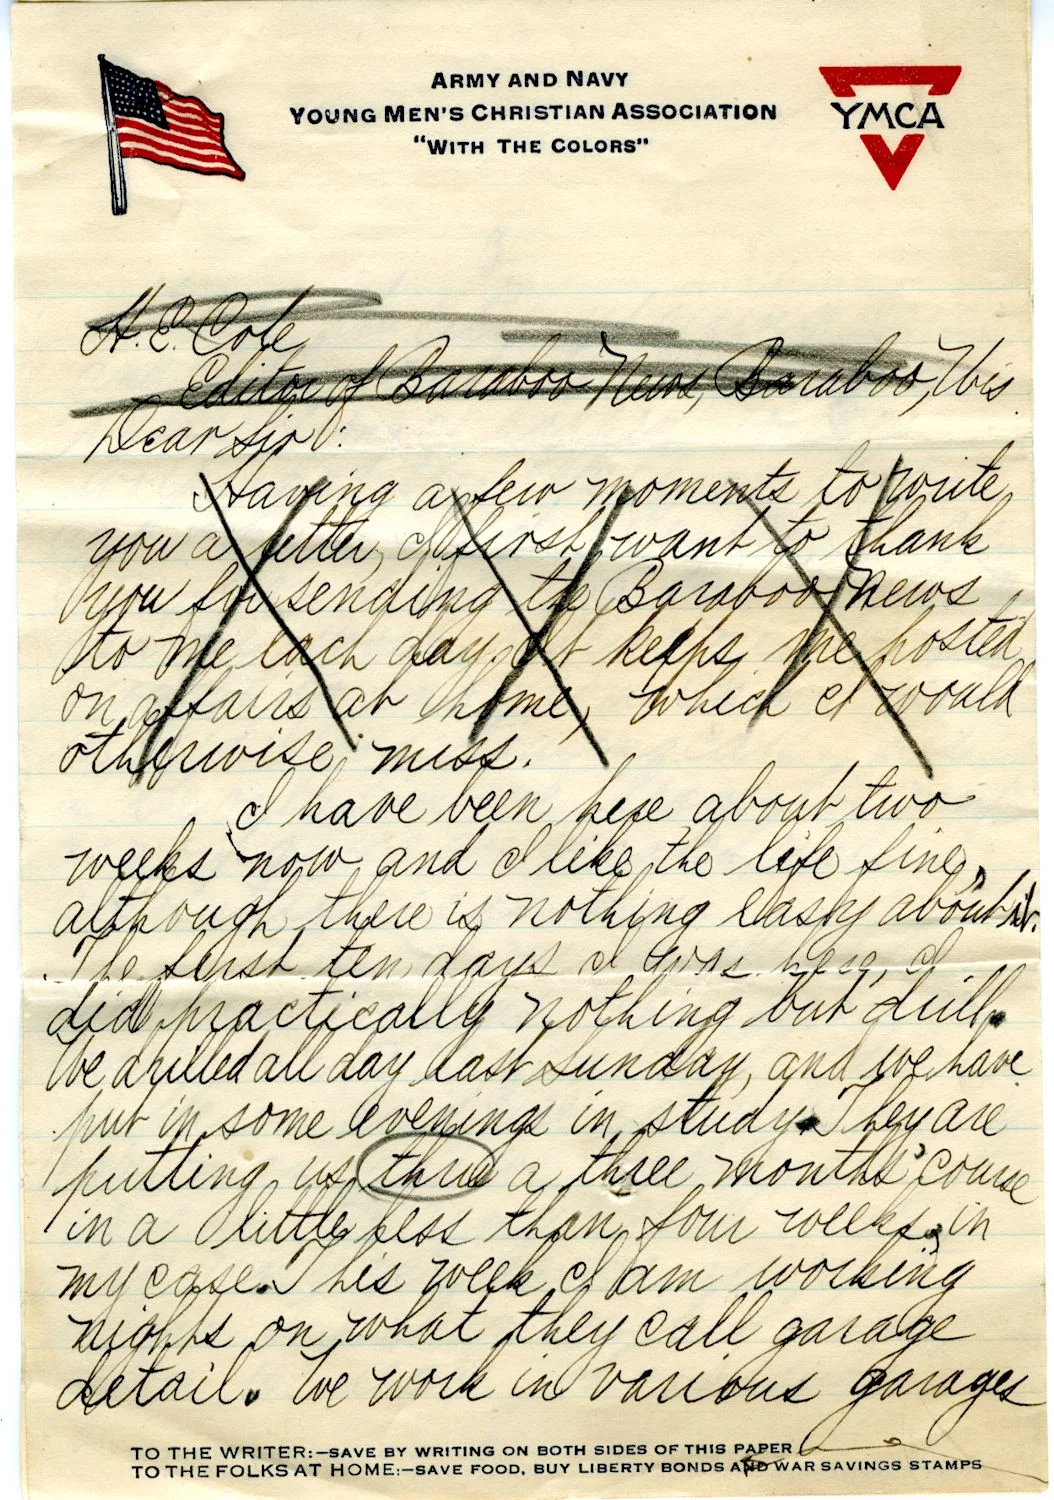 ARMY AND NAVY
YOUNG MEN'S CHRISTIAN ASSOCIATION
"WITH THE COLORS"
YMCA
H. E. Cole
Editor of Baraboo News, Baraboo, Wis
Dear Sir:
Having a few moments to write
you a letter, I first want to thank
you for sending the Baraboo News
to me each day. It keeps me posted
on affairs at home, which I would
otherwise miss.
I have been here about two
weeks now and I like the life fine,
although there is nothing easy about it.
The first ten days I was here, I
did practically nothing but drill.
We drilled all day last Sunday, and we have
put in some evenings in study. They are
putting us thru a three months' course
in a little less than four weeks, in
my case. This week I am working
nights on what they call garage
detail. We work in various garages
TO THE WRITER:—SAVE BY WRITING ON BOTH SIDES OF THIS PAPER
TO THE FOLKS AT HOME:—SAVE FOOD, BUY LIBERTY BONDS AND WAR SAVINGS STAMPS